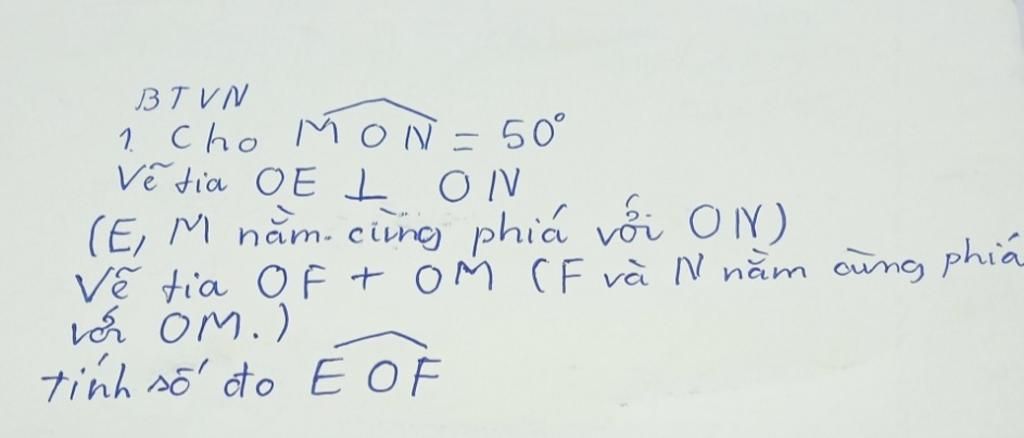 BTVN
1. Cho MON = 50°
Vẽ tia OE ⊥ ON
(E, M nằm cùng phiá với ON)
Vẽ tia OF + OM (F và N nằm cùng phiá
với OM.)
tính số đo EOF